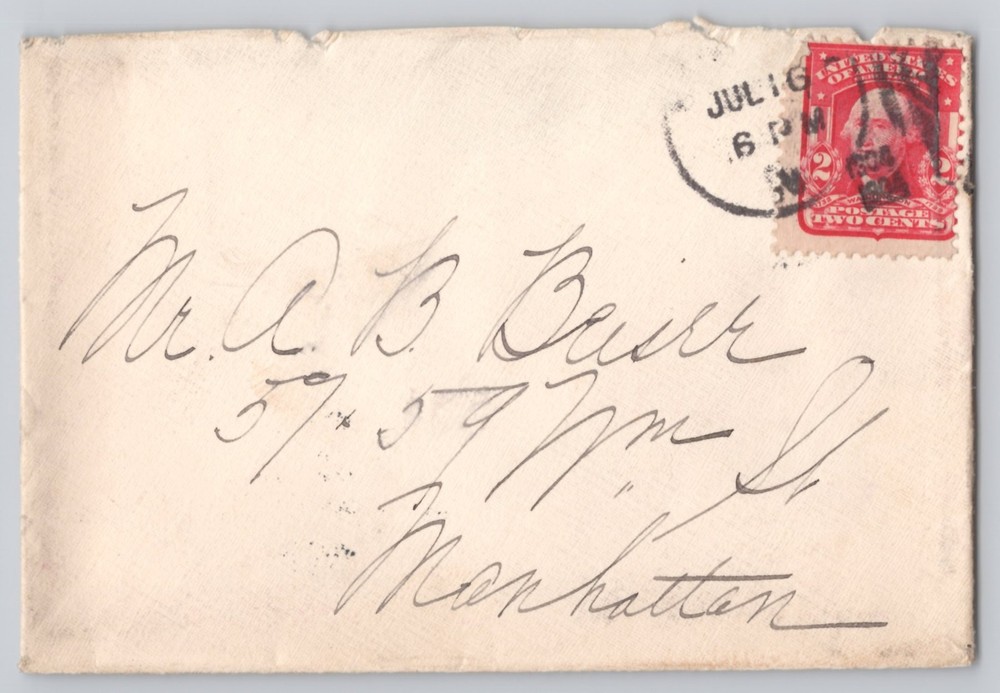 JUL 16
6 PM
1904
UNITED STATES
OF AMERICA
2 2
POSTAGE
TWO CENTS
Mr. A. B. Beiser
57-59 Wm. St.
Manhattan